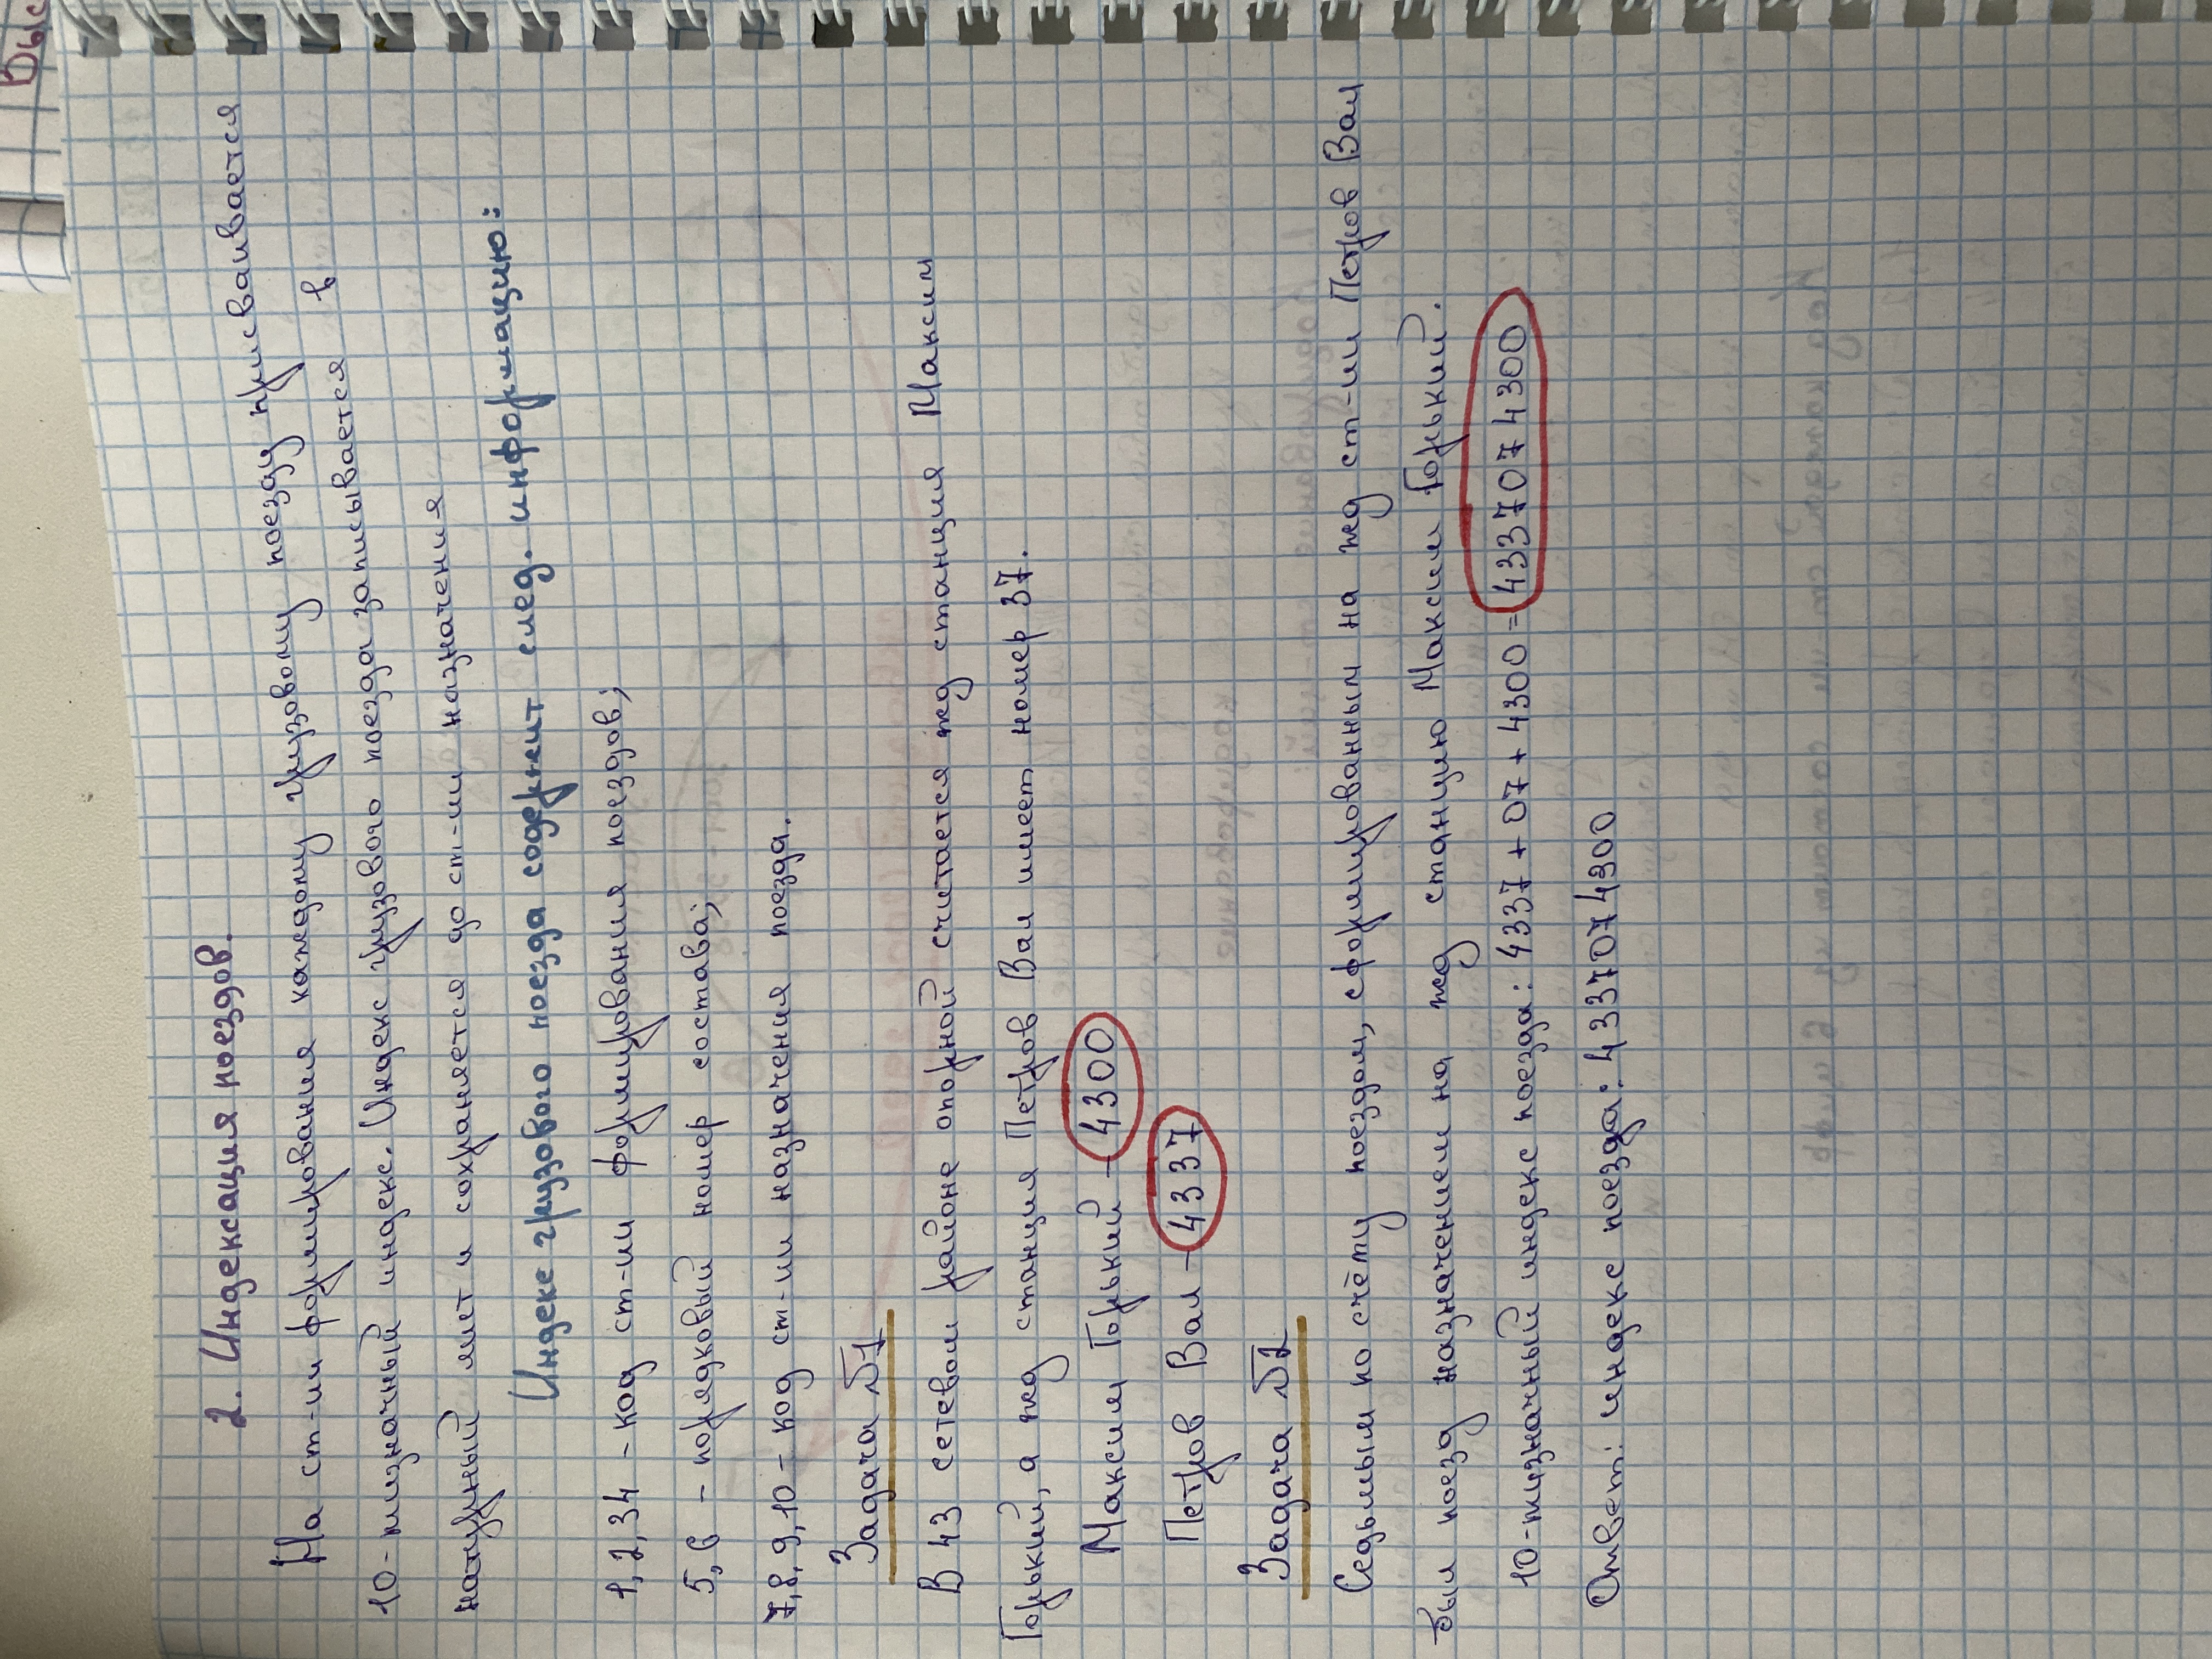 Выс
2. Индексация поездов.
На ст-ии формирования каждому грузовому поезду присваивается
10-тизначный индекс. Индекс грузового поезда записывается в
натурный лист и сохраняется до ст-ии назначения
Индекс грузового поезда содержит след. информацию:
1,2,34 - код ст-ии формирования поездов;
5,6 - порядковый номер состава;
7,8,9,10 - код ст-ии назначения поезда.
Задача №1
В 43 сетевом районе опорной считается жд станция Максим
Горький, а жд станция Петров Вал имеет номер 37.
Максим Горький - 4300
Петров Вал - 4337
Задача №2
Седьмым по счёту поездом, сформированным на жд ст-ии Петров Вал
был поезд назначением на жд станцию Максим Горький.
10-тизначный индекс поезда: 4337 + 07 + 4300 = 4337074300
Ответ: индекс поезда: 4337074300